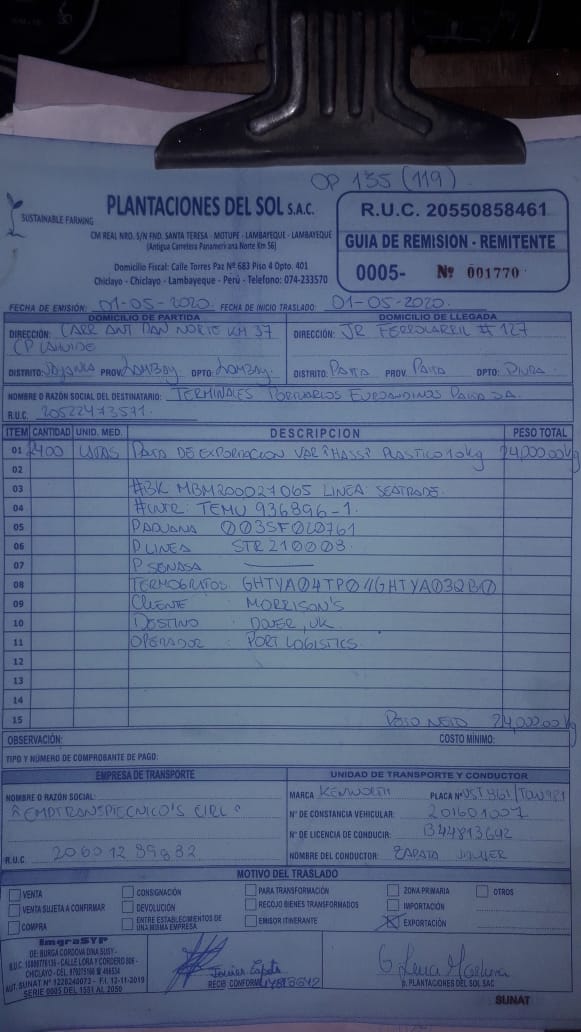 OP 135 (119)
SUSTAINABLE FARMING
PLANTACIONES DEL SOL S.A.C.
CM REAL NRO. S/N FND. SANTA TERESA - MOTUPE - LAMBAYEQUE - LAMBAYEQUE
(Antigua Carretera Panamericana Norte Km 56)
Domicilio Fiscal: Calle Torres Paz Nº 683 Piso 4 Dpto. 401
Chiclayo - Chiclayo - Lambayeque - Perú - Telefono: 074-233570
R.U.C. 20550858461
GUIA DE REMISION - REMITENTE
0005- Nº 001770
FECHA DE EMISIÓN: 01-05-2020 FECHA DE INICIO TRASLADO: 01-05-2020
DOMICILIO DE PARTIDA
DIRECCIÓN: CARR ANT PAN NORTE KM 37
DISTRITO: PROV. LAMBAY. DPTO: LAMBAY.
DOMICILIO DE LLEGADA
DIRECCIÓN: JR FERROCARRIL # 127
DISTRITO: PAITA PROV. PAITA DPTO: PIURA
NOMBRE O RAZÓN SOCIAL DEL DESTINATARIO: TERMINALES PORTUARIOS EUROANDINOS PAITA SA.
R.U.C. 20522473571
ITEM CANTIDAD UNID. MED. DESCRIPCION PESO TOTAL
01 2400 PALTA DE EXPORTACION VAR "HASS" PLASTICO 10kg 24,000.00 kg
02
03 #BK MBM200021065 LINEA: SEATRADE.
04 #CNTR: TEMU 936896-1.
05 P ADUANA
06 P LINEA STR210008
07 P SENASA
08 TERMOGRAFOS:
09 CLIENTE : MORRISON'S
10 DESTINO : DOVER, UK
11 OPERADOR : PORT LOGISTICS
12
13
14
15 PESO NETO 24,000.00 kg
OBSERVACIÓN: COSTO MÍNIMO:
TIPO Y NÚMERO DE COMPROBANTE DE PAGO:
EMPRESA DE TRANSPORTE
NOMBRE O RAZÓN SOCIAL:
R.U.C.
UNIDAD DE TRANSPORTE Y CONDUCTOR
MARCA KENWORTH PLACA Nº
Nº DE CONSTANCIA VEHICULAR:
Nº DE LICENCIA DE CONDUCIR: B44813692
NOMBRE DEL CONDUCTOR: ZAPATA JAVIER
MOTIVO DEL TRASLADO
VENTA CONSIGNACIÓN PARA TRANSFORMACIÓN ZONA PRIMARIA OTROS
VENTA SUJETA A CONFIRMAR DEVOLUCIÓN RECOJO BIENES TRANSFORMADOS IMPORTACIÓN
COMPRA ENTRE ESTABLECIMIENTOS DE UNA MISMA EMPRESA EMISOR ITINERANTE EXPORTACIÓN
ImgraSYP
DE: BURGA CORDOVA DINA SUSY -
CHICLAYO - CEL.
AUT. SUNAT Nº 1228240073 - F.I. 12-11-2019
SERIE 0005 DEL 1551 AL 2050
Javier Zapata
RECIBI CONFORME
P. PLANTACIONES DEL SOL SAC
SUNAT